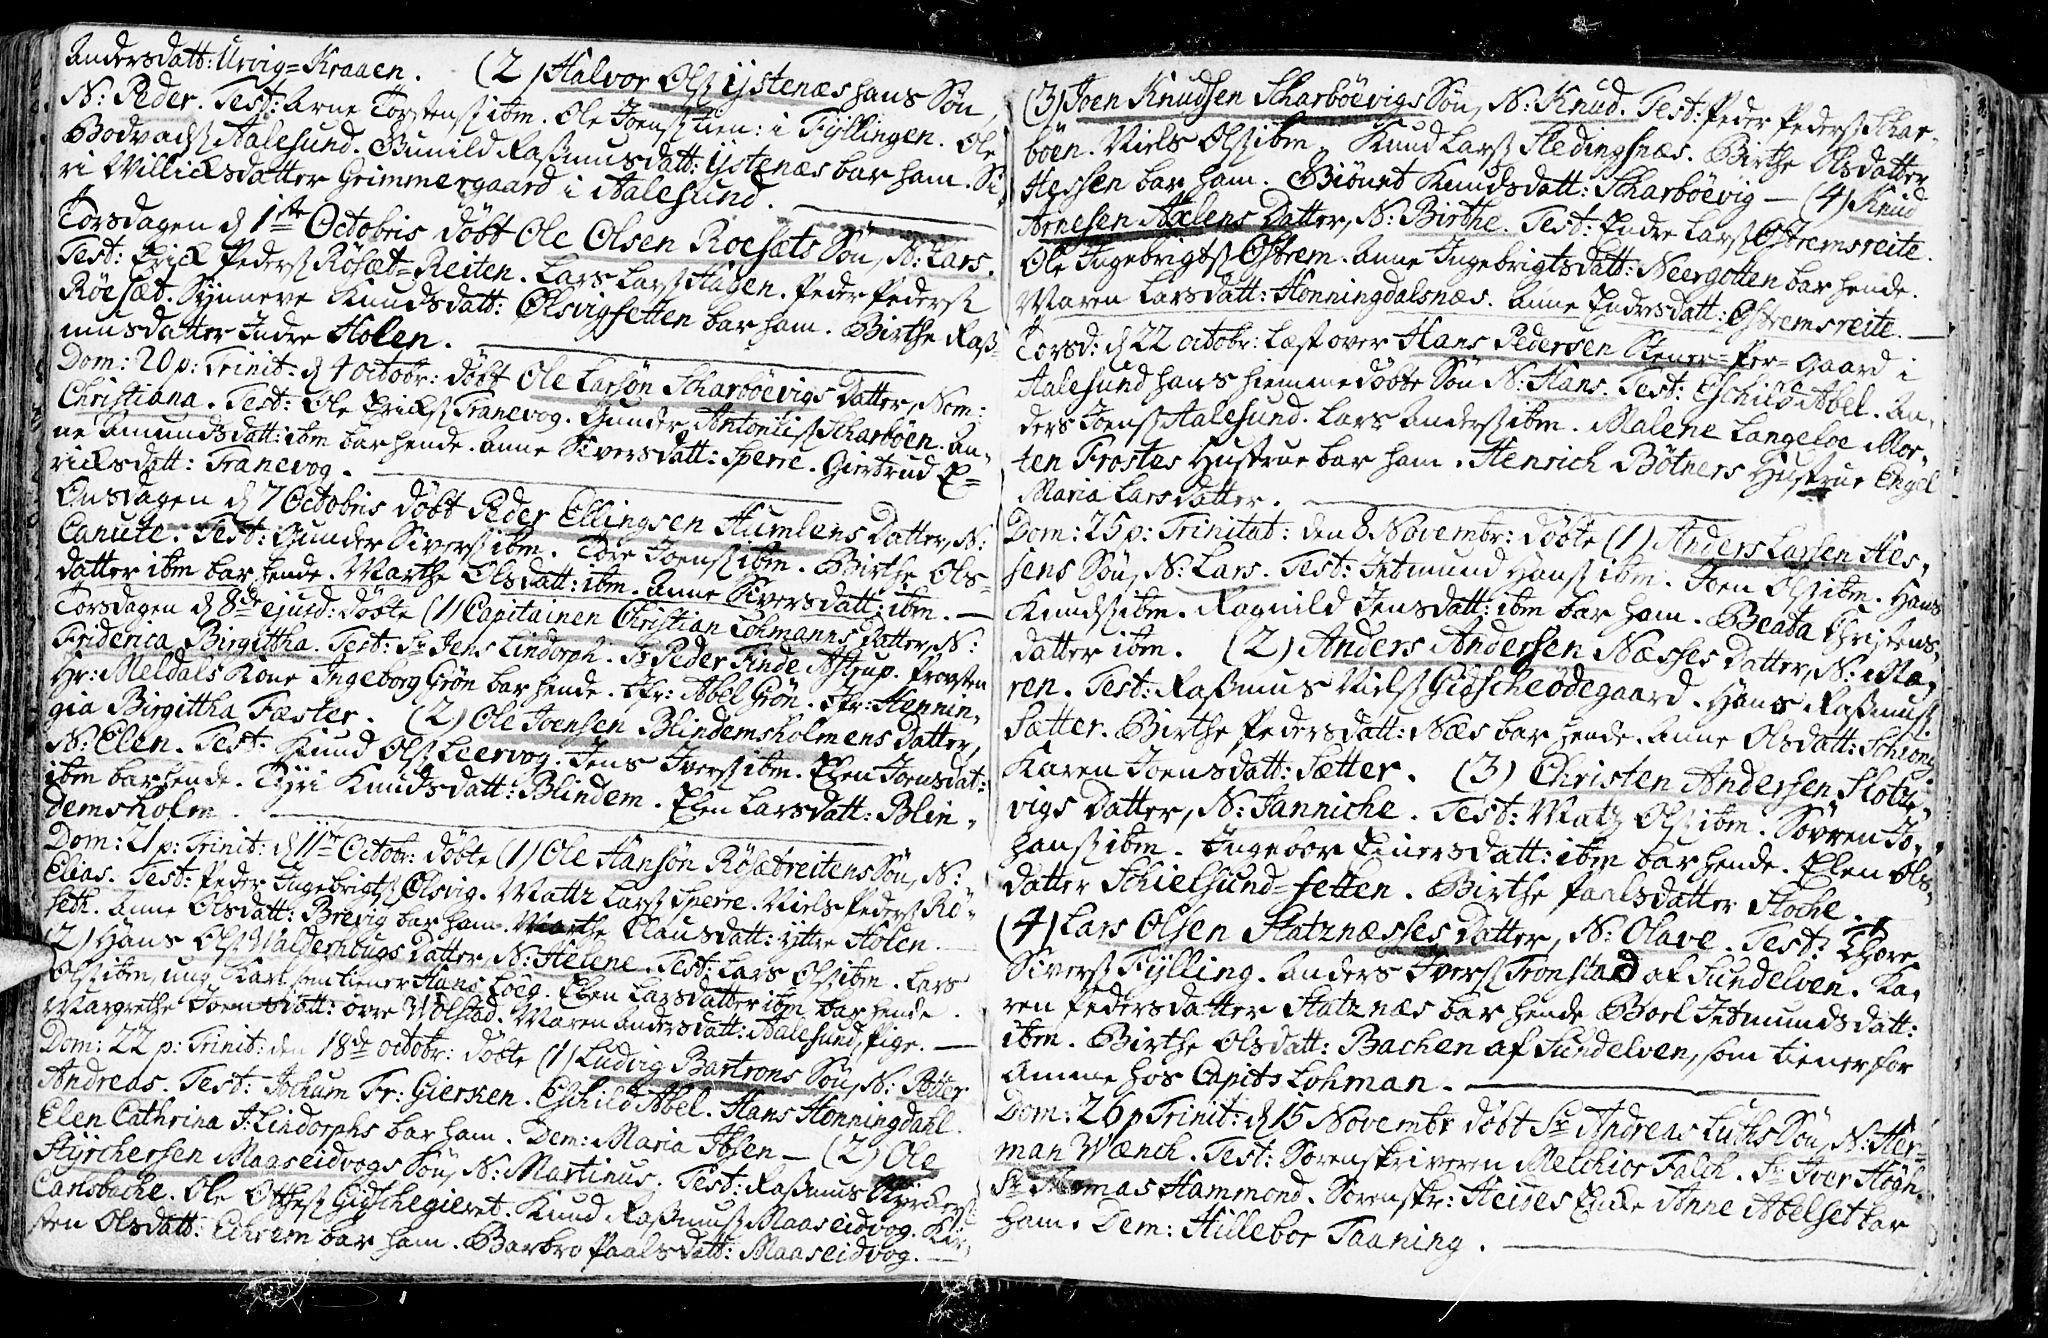 Andersdatt: Urvig=Kraaen. (2) Halvor Olsß ÿstenæs hans Søn,
N: Peder. Test: Arne Torstensß ibm. Ole Joensß tien: i Fÿllingen. Ole
Bodvachsß Aalesund. Gunild Raßmusdatt: ÿstenæs bar ham. Si-
ri Willicksdatter Grimmergaard i Aalesund.
Torsdagen d 1ste Octobris döbt Ole Olsen Roesæts Søn, N: Lars.
Test: Erick Pedersß Rösæt=Reiten. Lars Larsß Hagen. Peder Pedersß
Röesæt. Sÿnneve Knudsdatt: Ølsvigsetten bar ham. Birthe Raß-
musdatter Indre Holen.
Dom: 20 p: Trinit: d 4 octobr: döbt Ole Larsøn Scharböevigs Datter, Nom:
Christiana. Test: Ole Ericksß Tranevog. Gunder Antonisß Scharböen. An-
ne Amundsdatt: ibm bar hende. Anne Siversdatt: Sperre. Giertrud E=
ricksdatt: Tranevog.
Onsdagen d 7 Octobris döbt Peder Ellingsen Humlens Datter, N:
Canute. Test: Gunder Siversß ibm. Tore Joensß ibm. Birthe Ols-
datter ibm bar hende. Marthe Olsdatt: ibm. Anne Siversdatt: ibm.
Torsdagen d 8de ejusd: döbte (1) Capitainen Christian Lohmanns Datter, N:
Friderica Birgittha. Test: Sr Jens Lindorph. Sr Peder Finde Astrup. Provsten
Hr: Meldals Kone Ingeborg Grön bar hende. Jfr: Abel Grön. Jfr: Hennin-
gia Birgittha Fæster. (2) Ole Joensen Blindemsholmens Datter,
N: Elen. Test: Knud Olsß Leervog. Jens Iversß ibm. Elen Joensdat:
ibm bar hende. Tÿri Knudsdatt: Blindem. Elen Larsdatt: Blin-
demsholm.
Dom: 21 p: Trinit: d 11te Octobr: döbte (1) Ole Hansøn Rösætreitens Søn, N:
Elias. Test: Peder Ingebrigtsß Ølsvig. Mattz Larsß Sperre. Niels Pedersß Rö-
seth. Anne Olsdatt: Brevig bar ham. Marthe Clausdatt: ÿttre Holen.
(2) Hans Olsß Walderhougs Datter, N: Helene. Test: Lars Olsß ibm. Lars
Olsß ibm, ung Karl som tiener Hans Loeg. Elen Larsdatter ibm bar hende.
Margrethe Joensdatt: örre Wolstad. Maren Andersdatt: Aalesund, Pige.
Dom: 22 p: Trinit: den 18de octobr: döbte (1) Ludvig Bartrons Søn, N: Peter
Andreas. Test: Jochum Fr: Gierken. Eschild Abel. Hans Honningdahl.
Elen Cathrina J: Lindorphs bar ham. Dem: Maria Ibsen — (2) Ole
Stÿrchersen Maaseidvogs Søn, N: Martinus. Test: Raßmus Stÿrckersß
Carlsbache. Ole Otthesß Gidschegieret. Knud Raßmusß Maaseidvog. Kir-
sten Olsdatt: Echrem bar ham. Barbro Paalsdatt: Maaseidvog.
(3) Joen Knudsen Scharböevigs Søn, N: Knud. Test: Peder Pedersß Schar-
böen. Niels Olsß ibm. Knud Larsß Fledingsnæs. Birthe Olsdatter
Hessen bar ham. Biönet Knudsdatt: Scharböevig — (4) Knud
Arnesen Axlens Datter, N: Birthe. Test: Endre Larsß Østremsreite.
Ole Ingebrigtsß Østrem. Anne Ingebrigtsdatt: Neergotten bar hende.
Maren Larsdatt: Honningdalsnæs. Anne Endersdatt: Østremsreite.
Torsd: d 22 octobr: læst over Hans Pedersen Stener=Per=Gaard i
Aalesund hans hiemmedöbte Søn N: Hans. Test: Eschild Abel. An-
ders Joensß Aalesund. Lars Andersß ibm. Malene Langeloe Mor-
ten Frostes Hustrue bar ham. Henrich Bötners Hustrue Engel
Maria Larsdatter.
Dom: 25 p: Trinitat: den 8 Novembr: döbte (1) Anders Larsen Hes-
sens Søn, N: Lars. Test: Jetmund Hansß ibm. Joen Olsß ibm. Hans
Knudsß ibm. Ragnild Jensdatt: ibm bar ham. Beata Christens-
datter ibm. (2) Anders Andersen Næsses Datter, N: Ma-
ren. Test: Raßmus Nielsß Gidscheödegaard. Hans Raßmusß
Sætter. Birthe Pedersdatt: Næs bar hende. Anne Olsdatt: Schiong.
Karen Joensdatt: Sætter. (3) Christen Andersen Flotze-
vigs Datter, N: Janniche. Test: Matz Olsß ibm. Sövren Jo-
hansß ibm. Ingebor Einersdatt: ibm bar hende. Elen Ols-
datter Schielsund=setten. Birthe Paalsdatter Floche.
(4) Lars Olsen Flatznæsses Datter, N: Olave. Test: Thore
Siversß Fÿlling. Anders Iversß Tronstad af Sundelven. Ka-
ren Pedersdatter Flatznæs bar hende Boel Jetmundsdatt:
ibm. Birthe Olsdatt: Bachen af Sundelven, som tiener for
Amme hos Capit: Lohman.
Dom: 26 p Trinit: d 15 Novembr döbt Sr Andreas Luths Søn, N: Her-
man Wænch. Test: Sorenskriveren Melchior Falch. Sr Iver Høgh.
Sr Thomas Hammond. Sorenskr: Heides Enke Anne Abelset bar
ham. Dem: Hillebor Taaning.